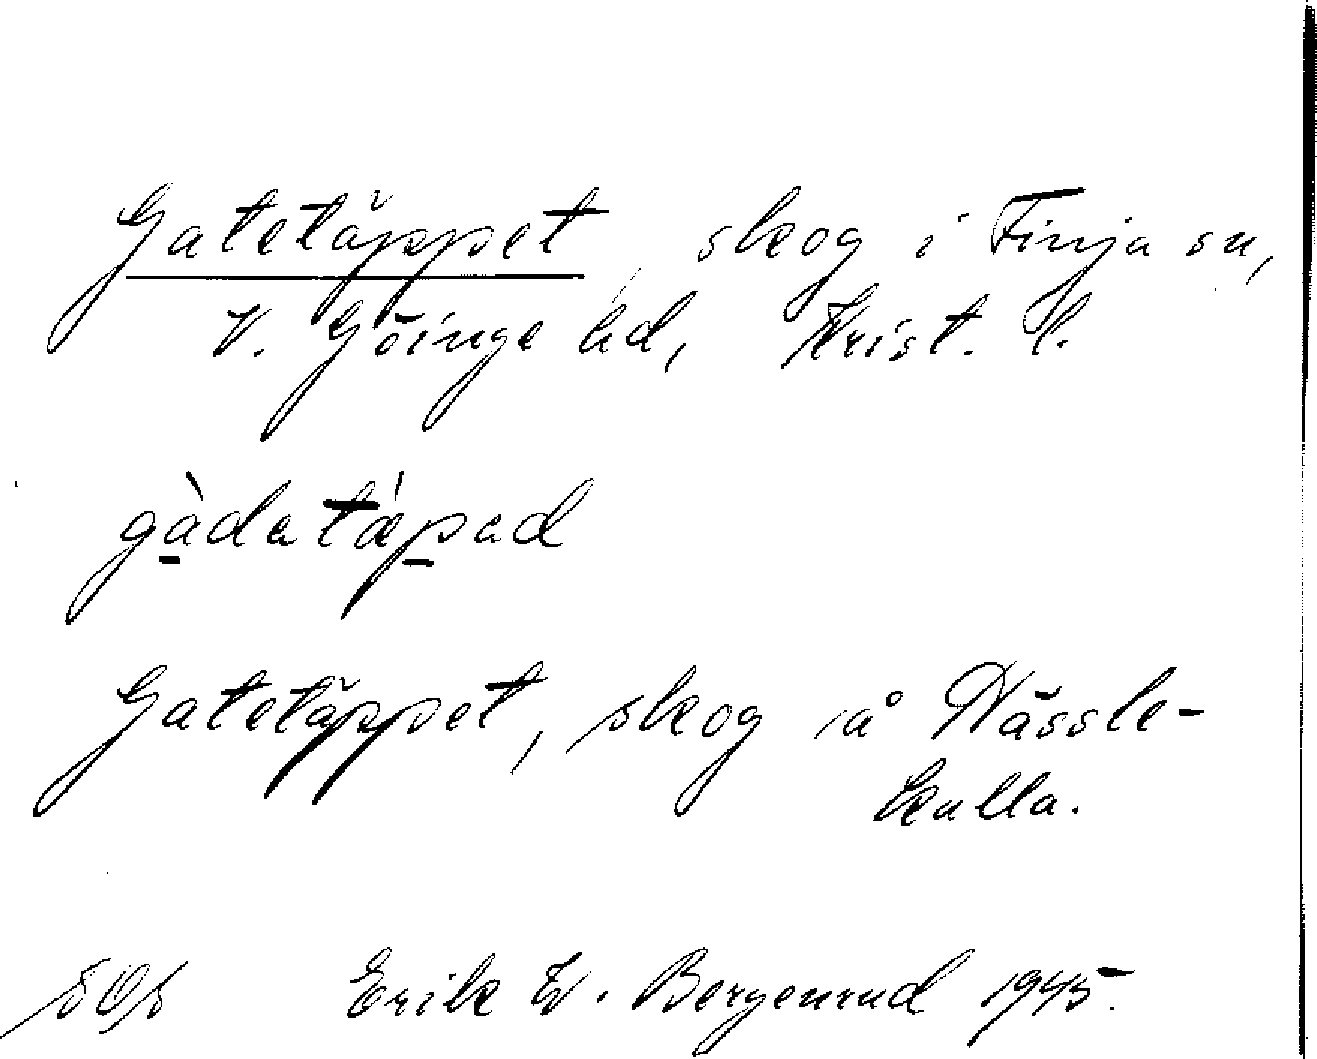 Gatetäppet, skog i Finja sn,
V. Göinge hd, Krist. l.
gàdatápad
Gatetäppet, skog å Hässle-
kulla.
Erik W. Bergenrud 1945.